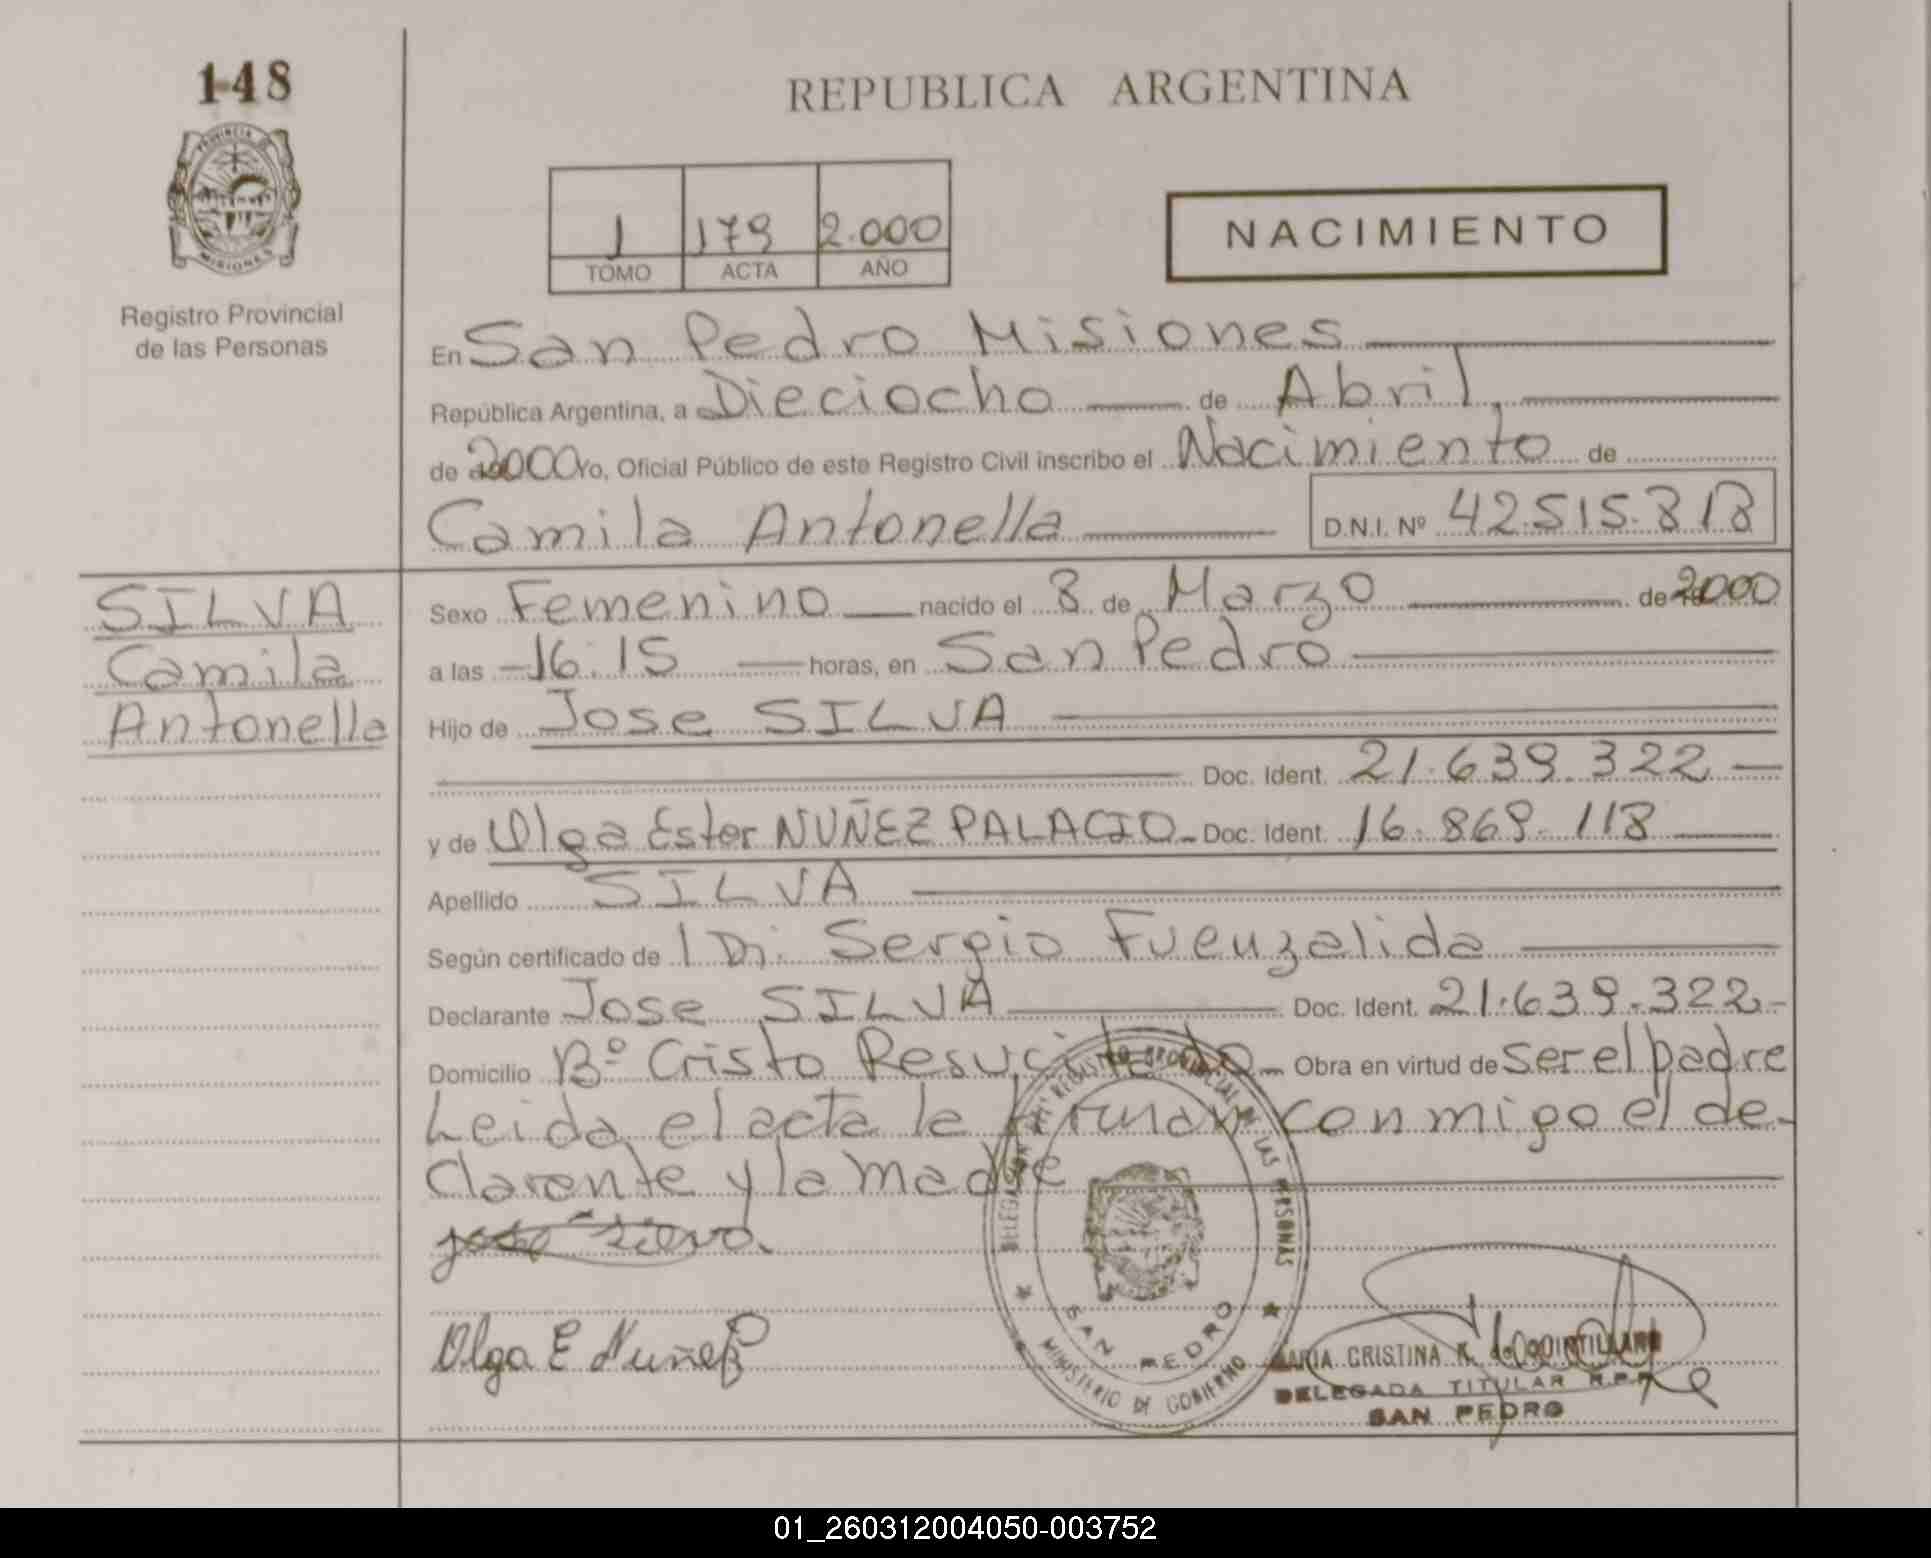 148
PROVINCIA DE
MISIONES
Registro Provincial
de las Personas
REPUBLICA ARGENTINA
1 179 2.000
TOMO ACTA AÑO
NACIMIENTO
En San Pedro Misiones
República Argentina, a Dieciocho de Abril
de 2000 Yo, Oficial Público de este Registro Civil inscribo el Nacimiento de
Camila Antonella D.N.I. Nº 42.515.818
SILVA
Camila
Antonella
Sexo Femenino nacido el 8 de Marzo de 2000
a las 16.15 horas, en San Pedro
Hijo de Jose SILVA
Doc. Ident. 21.639.322
y de Olga Ester NUÑEZ PALACIO Doc. Ident. 16.869.118
Apellido SILVA
Según certificado de Sergio Fuenzalida
Declarante Jose SILVA Doc. Ident. 21.639.322
Domicilio Bº Cristo Resucitado Obra en virtud de Ser el padre
Leida el acta la firman conmigo el de-
clarante y la madre
Jose Silva
Olga E Nuñez P
REGISTRO PROVINCIAL DE LAS PERSONAS
SAN PEDRO
MINISTERIO DE GOBIERNO
MARIA CRISTINA
DELEGADA TITULAR R.P.P.
SAN PEDRO
01_260312004050-003752